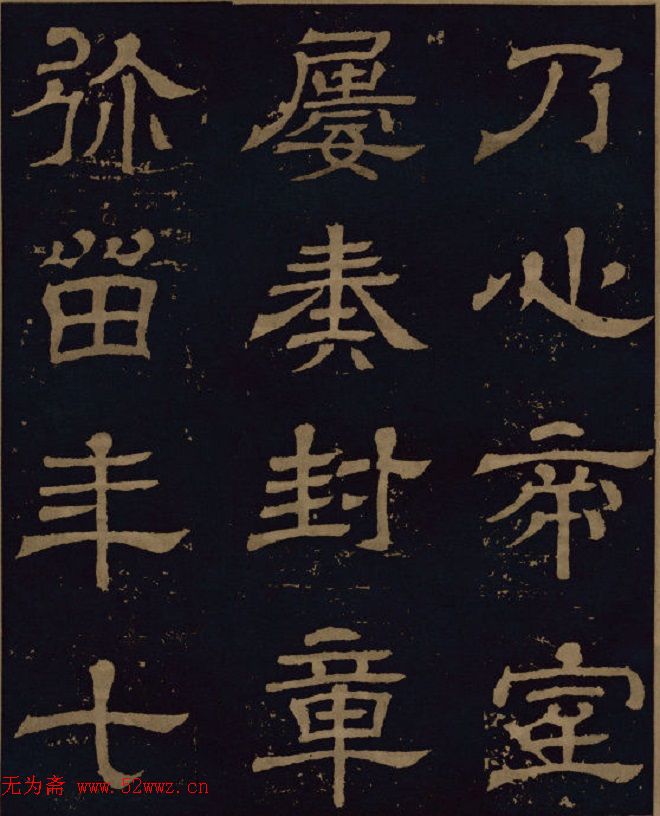 乃心帝
屢奏封章
弥留年七
无为斋 www.52wwz.cn